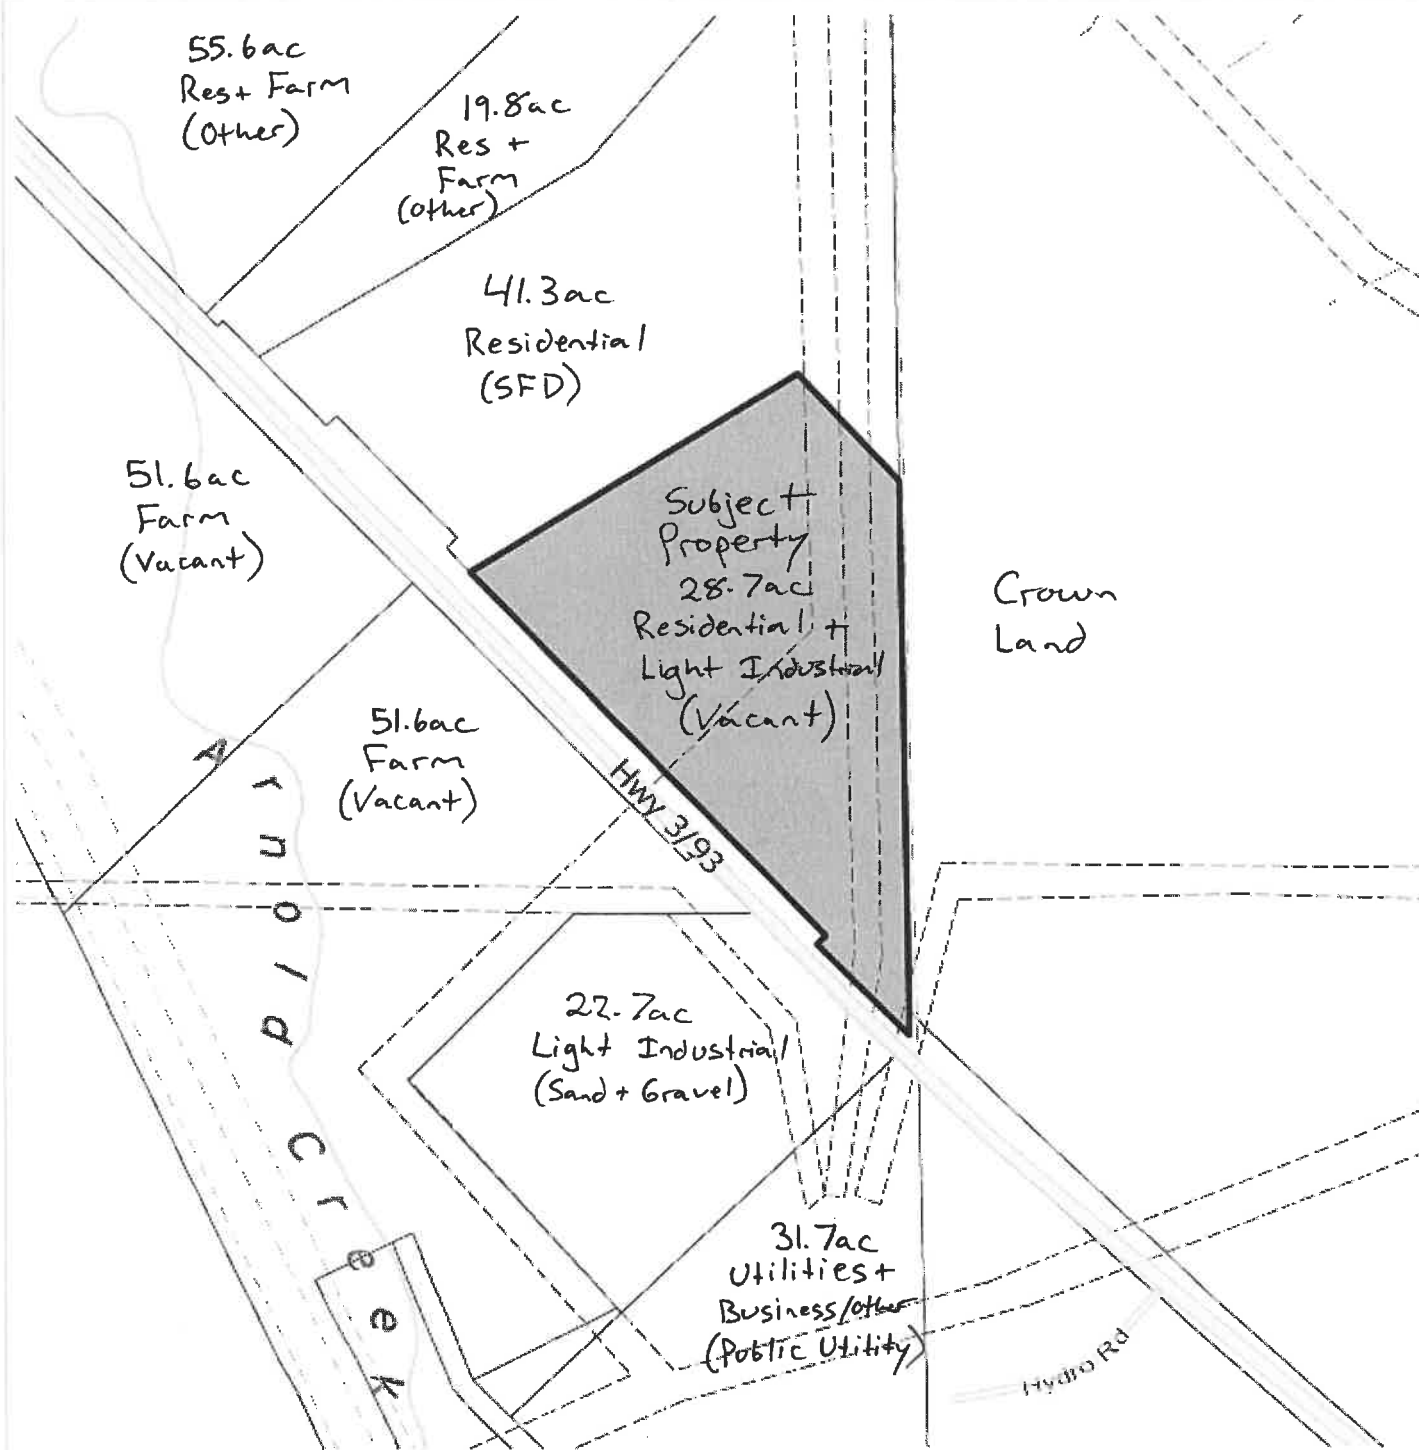 55.6ac
Res+ Farm
(Other)
19.8ac
Res +
Farm
(Other)
41.3ac
Residential
(SFD)
51.6ac
Farm
(Vacant)
Subject
Property
28.7ac
Residential +
Light Industrial
(Vacant)
Crown
Land
51.6ac
Farm
(Vacant)
Hwy 3/93
Arnold Creek
22.7ac
Light Industrial
(Sand + Gravel)
31.7ac
Utilities +
Business/other
(Public Utitity)
Hydro Rd